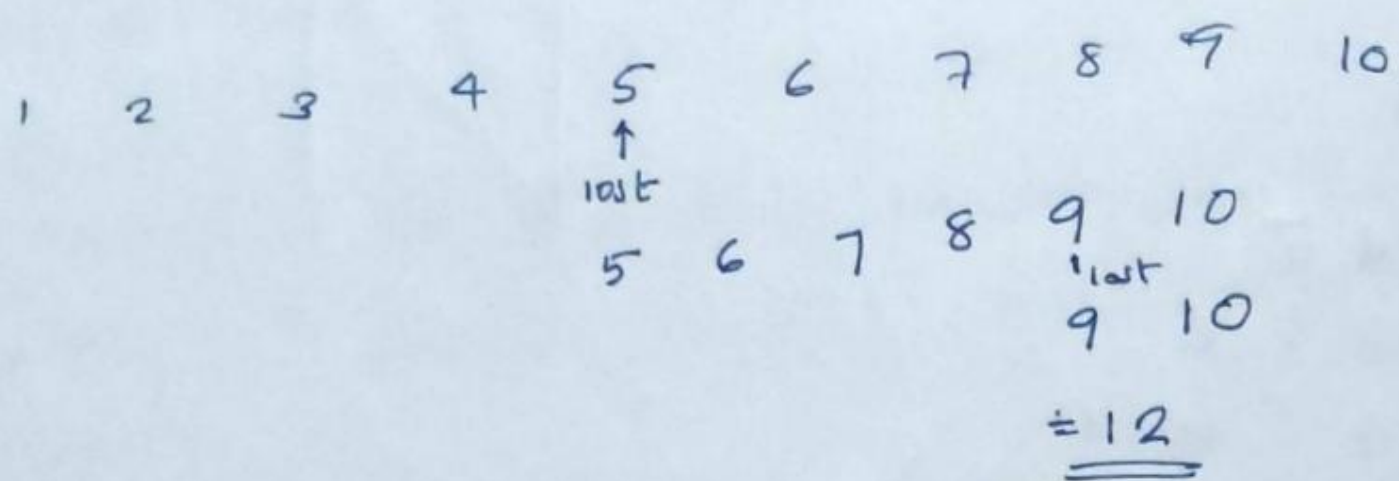 1 2 3 4 5 6 7 8 9 10
↑
lost
5 6 7 8 9 10
lost
9 10
= 12